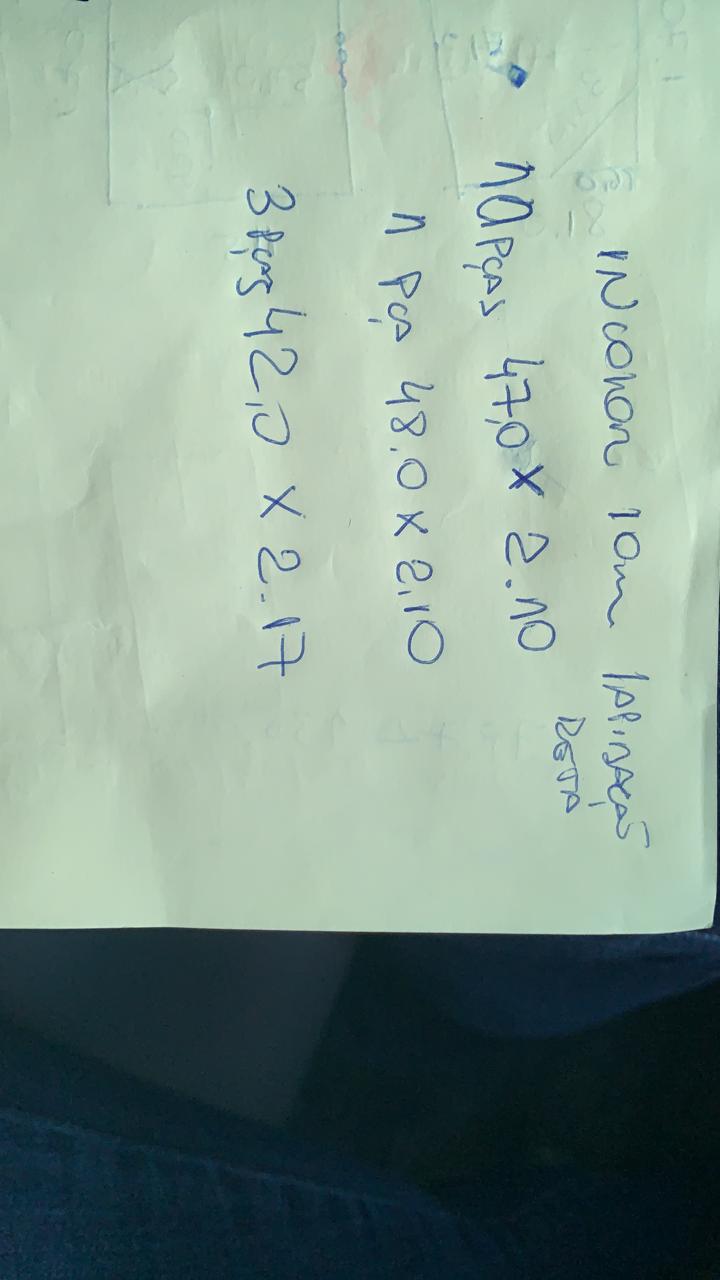 INcolor 10m lapidação
RETA
10 Pças 47,0 x 2.10
1 Pça 48.0 x 2,10
3 Pças 42,0 x 2.17